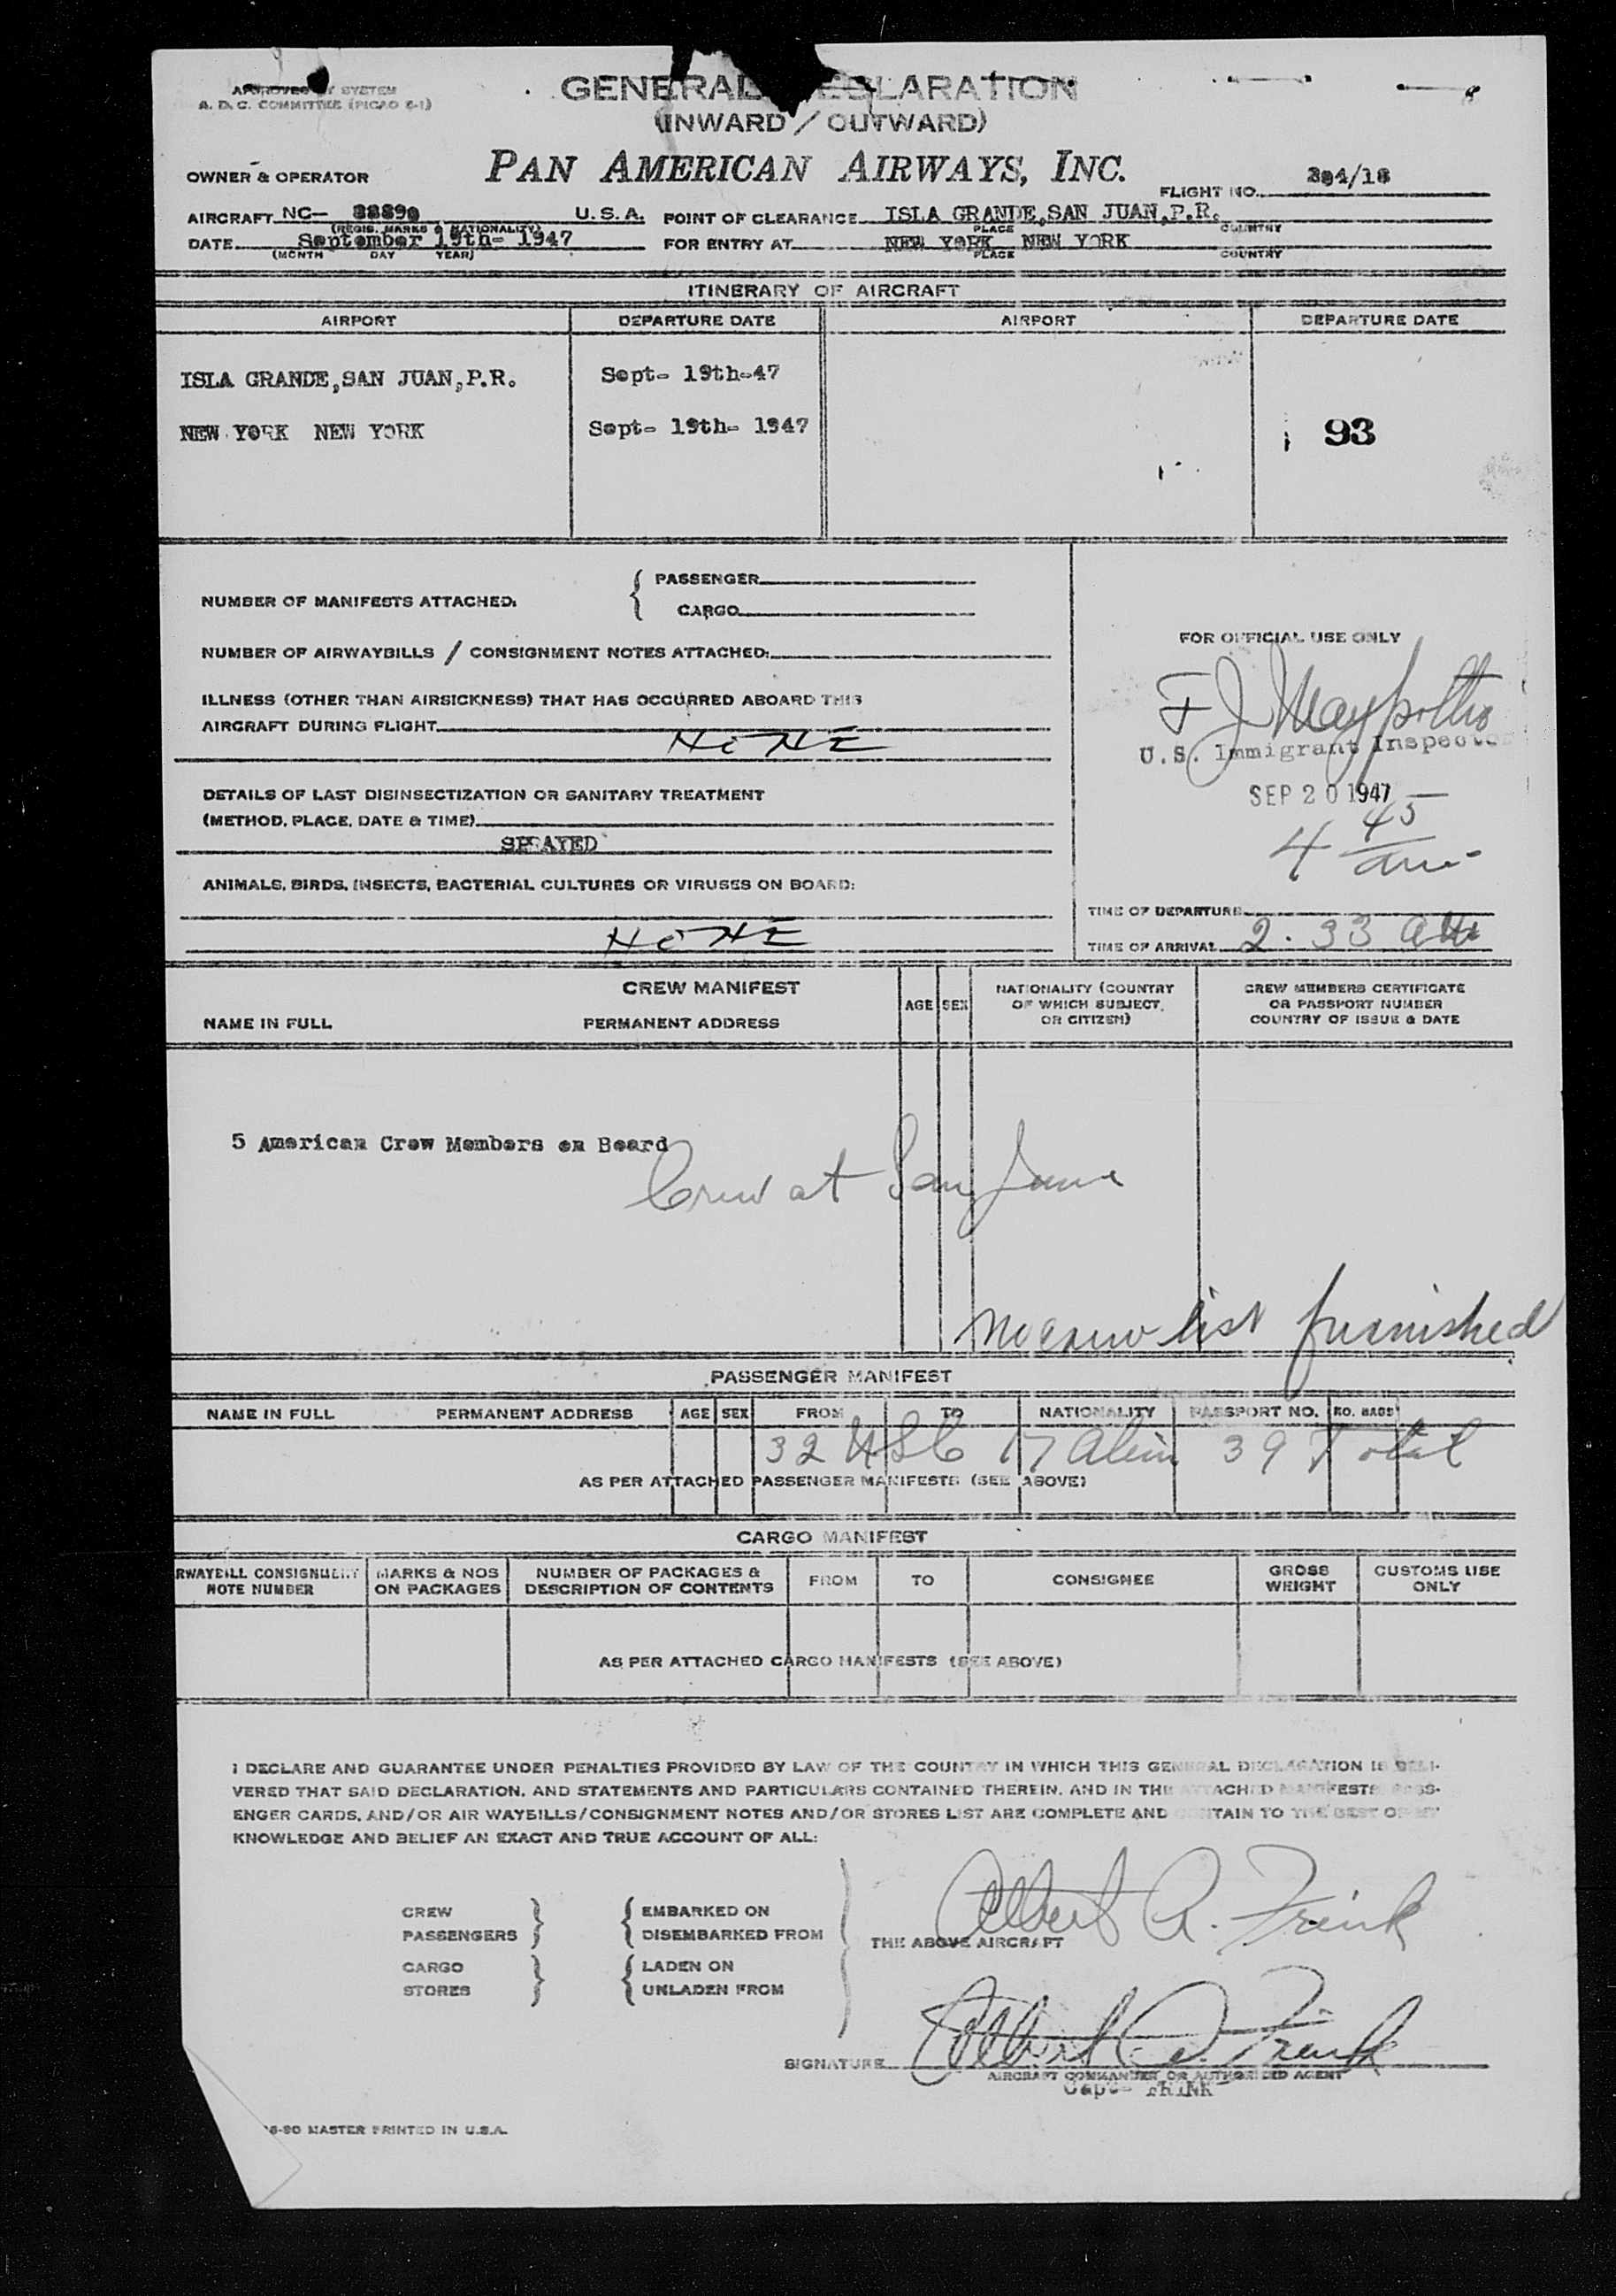 APPROVED BY SYSTEM
A. D. C. COMMITTEE (PICAO E-1)
GENERAL DECLARATION
(INWARD / OUTWARD)
PAN AMERICAN AIRWAYS, INC.
OWNER & OPERATOR
FLIGHT NO. 304/18
AIRCRAFT NC- 88890 U.S.A. POINT OF CLEARANCE ISLA GRANDE,SAN JUAN,P.R.
(REGIS. MARKS & NATIONALITY) PLACE COUNTRY
DATE September 19th- 1947 FOR ENTRY AT NEW YORK NEW YORK
(MONTH DAY YEAR) PLACE COUNTRY
ITINERARY OF AIRCRAFT
AIRPORT DEPARTURE DATE AIRPORT DEPARTURE DATE
ISLA GRANDE,SAN JUAN,P.R. Sept- 19th-47
NEW YORK NEW YORK Sept- 19th- 1947
93
NUMBER OF MANIFESTS ATTACHED: { PASSENGER
CARGO
NUMBER OF AIRWAYBILLS / CONSIGNMENT NOTES ATTACHED:
ILLNESS (OTHER THAN AIRSICKNESS) THAT HAS OCCURRED ABOARD THIS
AIRCRAFT DURING FLIGHT
NONE
DETAILS OF LAST DISINSECTIZATION OR SANITARY TREATMENT
(METHOD, PLACE, DATE & TIME)
SPRAYED
ANIMALS, BIRDS, INSECTS, BACTERIAL CULTURES OR VIRUSES ON BOARD:
NONE
FOR OFFICIAL USE ONLY
F J
U.S. Immigrant Inspector
SEP 20 1947
4 45 am
TIME OF DEPARTURE
TIME OF ARRIVAL 2.33 am
CREW MANIFEST
NAME IN FULL PERMANENT ADDRESS
AGE SEX
NATIONALITY (COUNTRY
OF WHICH SUBJECT,
OR CITIZEN)
CREW MEMBERS CERTIFICATE
OR PASSPORT NUMBER
COUNTRY OF ISSUE & DATE
5 American Crew Members on Board
Crew at San Juan
No crew list furnished
PASSENGER MANIFEST
NAME IN FULL PERMANENT ADDRESS AGE SEX FROM TO NATIONALITY PASSPORT NO. NO. BAGS
32 USC 17 Alien 39 Total
AS PER ATTACHED PASSENGER MANIFESTS (SEE ABOVE)
CARGO MANIFEST
RWAYBILL CONSIGNMENT
NOTE NUMBER
MARKS & NOS
ON PACKAGES
NUMBER OF PACKAGES &
DESCRIPTION OF CONTENTS
FROM TO CONSIGNEE
GROSS
WEIGHT
CUSTOMS USE
ONLY
AS PER ATTACHED CARGO MANIFESTS (SEE ABOVE)
I DECLARE AND GUARANTEE UNDER PENALTIES PROVIDED BY LAW OF THE COUNTRY IN WHICH THIS GENERAL DECLARATION IS DELI-
VERED THAT SAID DECLARATION, AND STATEMENTS AND PARTICULARS CONTAINED THEREIN, AND IN THE ATTACHED MANIFESTS PASS-
ENGER CARDS, AND/OR AIR WAYBILLS/CONSIGNMENT NOTES AND/OR STORES LIST ARE COMPLETE AND CONTAIN TO THE BEST OF MY
KNOWLEDGE AND BELIEF AN EXACT AND TRUE ACCOUNT OF ALL:
CREW
PASSENGERS } { EMBARKED ON
DISEMBARKED FROM
CARGO
STORES } { LADEN ON
UNLADEN FROM
Albert A. Frink
THE ABOVE AIRCRAFT
SIGNATURE Albert A. Frink
AIRCRAFT COMMANDER OR AUTHORIZED AGENT
Capt- FRINK
6-90 MASTER PRINTED IN U.S.A.